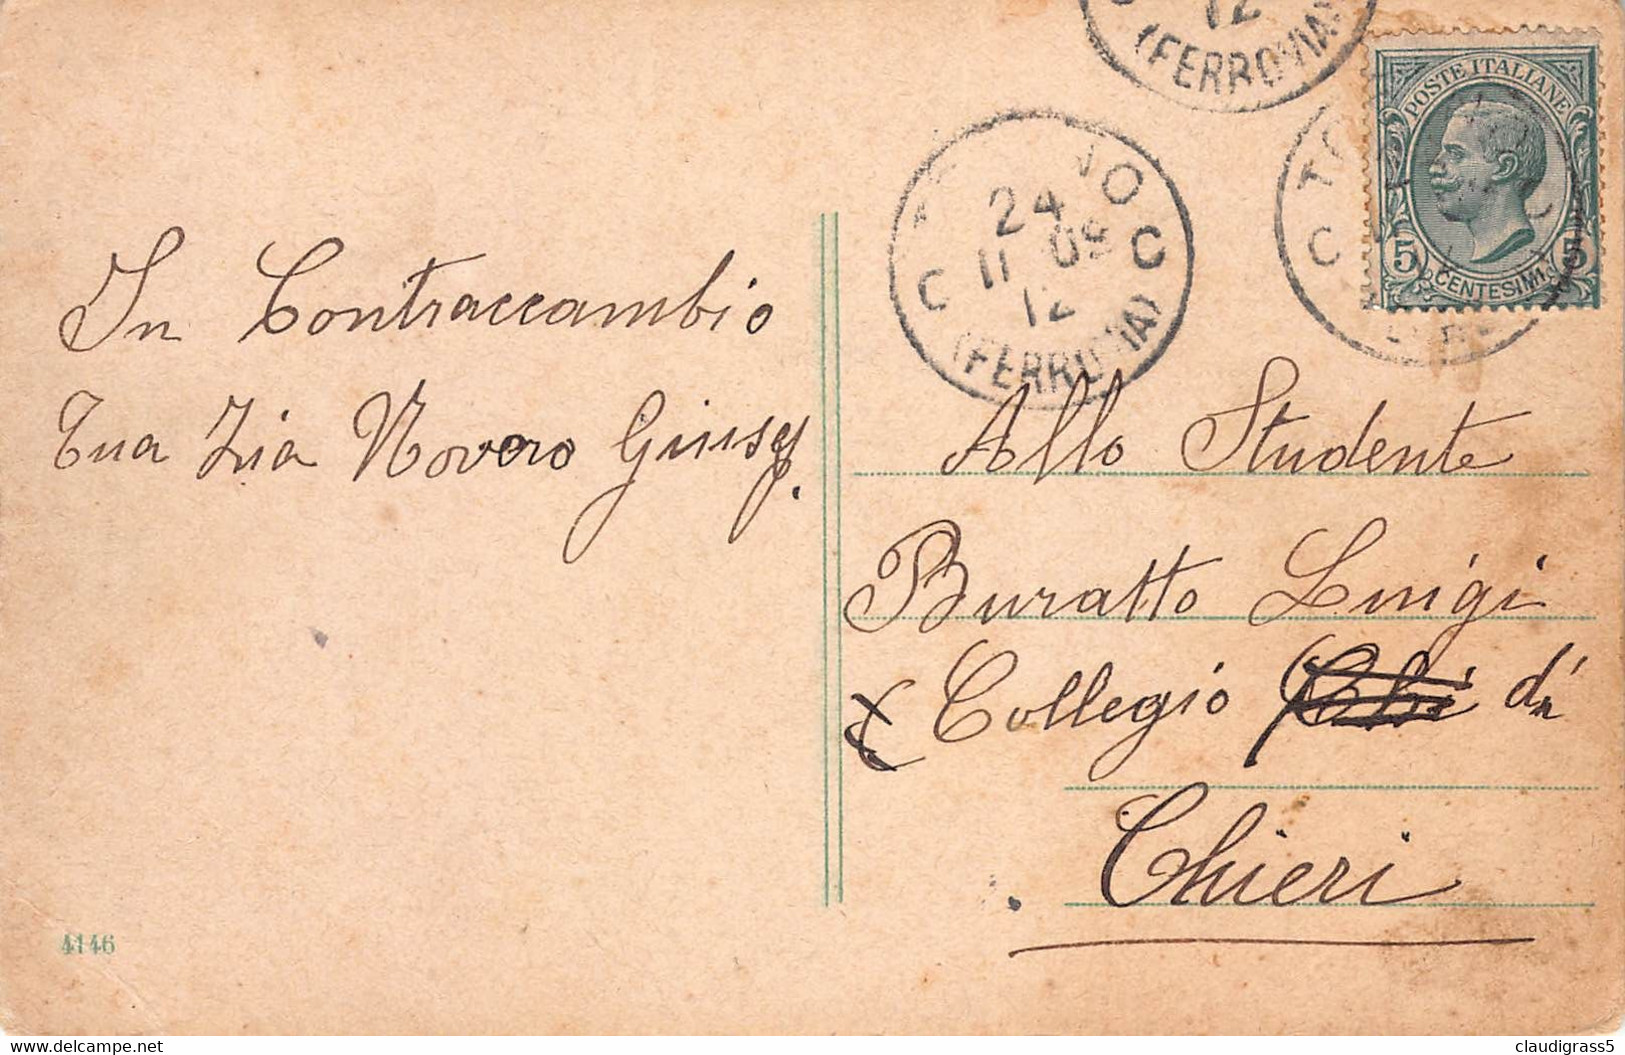 In Contraccambio
Tua Zia Novero Giusep.
12
(FERROVIA)
24
11 09
12
C C
(FERROVIA)
POSTE ITALIANE
5 CENTESIMI 5
Allo Studente
Buratto Luigi
Collegio di
Chieri
4146
delcampe.net
claudigrass5